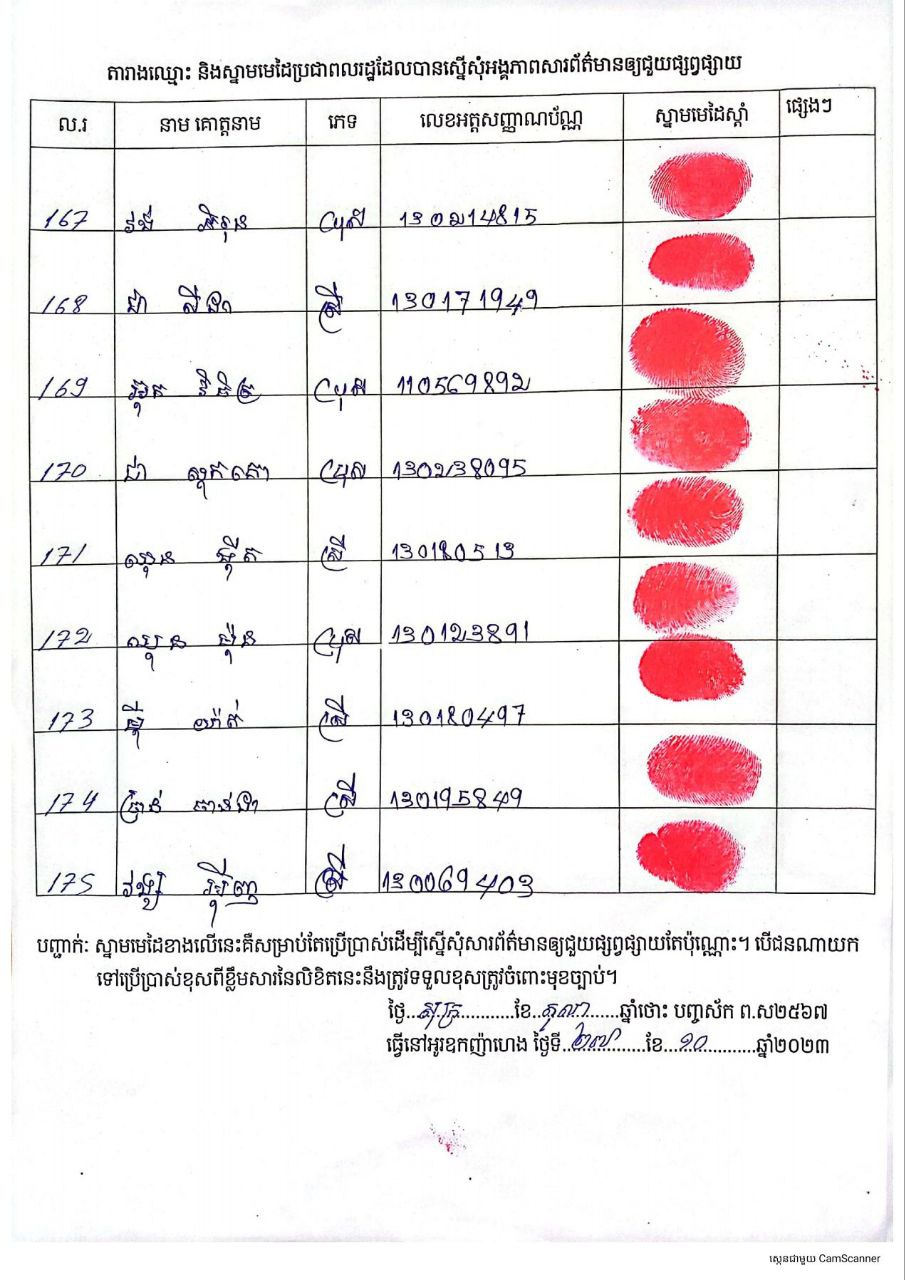 តារាងឈ្មោះ និងស្នាមមេដៃប្រជាពលរដ្ឋដែលបានស្នើសុំអង្គភាពសារព័ត៌មានឲ្យជួយផ្សព្វផ្សាយ
ល.រ នាម គោត្តនាម ភេទ លេខអត្តសញ្ញាណប័ណ្ណ ស្នាមមេដៃស្តាំ ផ្សេងៗ
167 ប្រុស 130214815
168 ជា ស៊ីថា ស្រី 130171949
169 វិចិត្រ ប្រុស 110569892
170 ជា ប្រុស 130238095
171 ឈុន ស្រី 130180513
172 ឈុន ប្រុស 130123891
173 ស្រី 130180497
174 ច្រាន់ ស្រី 130195849
175 ស្រី 130069403
បញ្ជាក់: ស្នាមមេដៃខាងលើនេះគឺសម្រាប់តែប្រើប្រាស់ដើម្បីស្នើសុំសារព័ត៌មានឲ្យជួយផ្សព្វផ្សាយតែប៉ុណ្ណោះ។ បើជនណាយក
ទៅប្រើប្រាស់ខុសពីខ្លឹមសារនៃលិខិតនេះនឹងត្រូវទទួលខុសត្រូវចំពោះមុខច្បាប់។
ថ្ងៃ..សុក្រ...........ខែ..តុលា......ឆ្នាំថោះ បញ្ចស័ក ព.ស២៥៦៧
ធ្វើនៅអូរឧកញ៉ាហេង ថ្ងៃទី..២៧............ខែ..១០...........ឆ្នាំ២០២៣
ស្កេនជាមួយ CamScanner